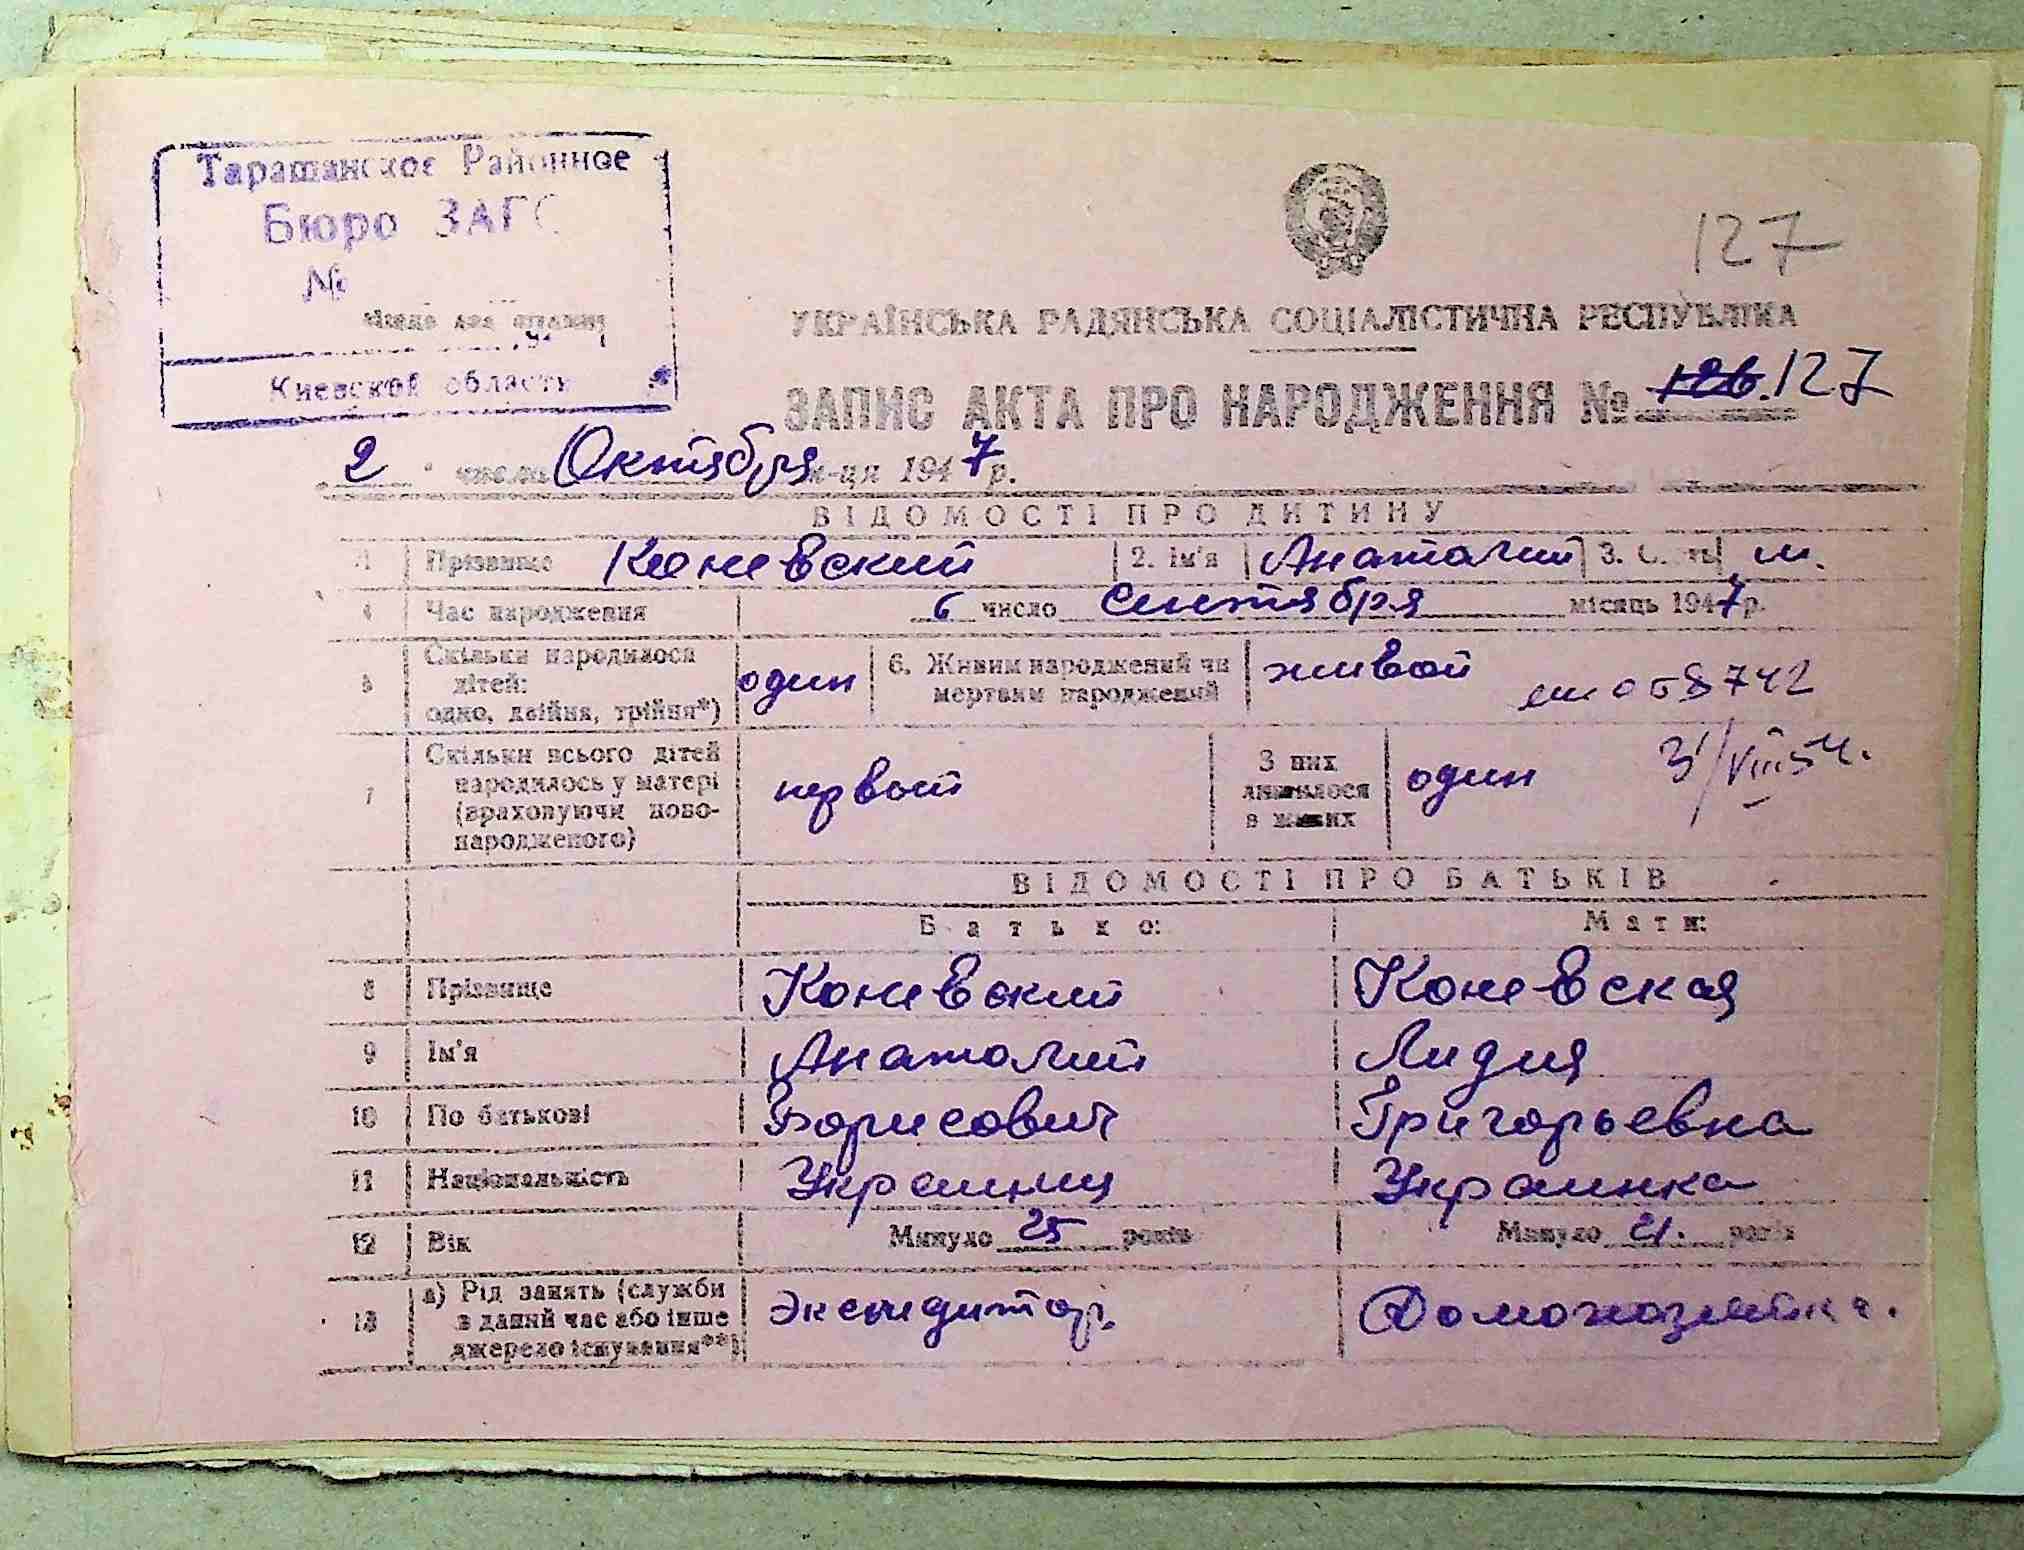 Таращанское Районное
Бюро ЗАГС
№
Киевской области
127
УКРАЇНСЬКА РАДЯНСЬКА СОЦІАЛІСТИЧНА РЕСПУБЛІКА
ЗАПИС АКТА ПРО НАРОДЖЕННЯ № 126. 127
2 числа Октября м-ця 1947 р.
ВІДОМОСТІ ПРО ДИТИНУ
1 Прізвище Коневский 2. Ім'я Анатолий 3. Стать м.
4 Час народження 6 число Сентября місяць 1947 р.
5 Скільки народилося дітей: одно, двійня, трійня*) один 6. Живим народжений чи мертвим народжений живой
742
7 Скільки всього дітей народилось у матері (враховуючи новонародженого) первый З них лишилося в живих один
31/VIII 54.
ВІДОМОСТІ ПРО БАТЬКІВ
Батько: Мати:
8 Прізвище Коневский Коневская
9 Ім'я Анатолий Лидия
10 По батькові Борисович Григорьевна
11 Національність Украинец Украинка
12 Вік Минуло 25 років Минуло 21. років
13 а) Рід занять (служби в даний час або інше джерело існування**) Экспедитор. Домохозяйка.